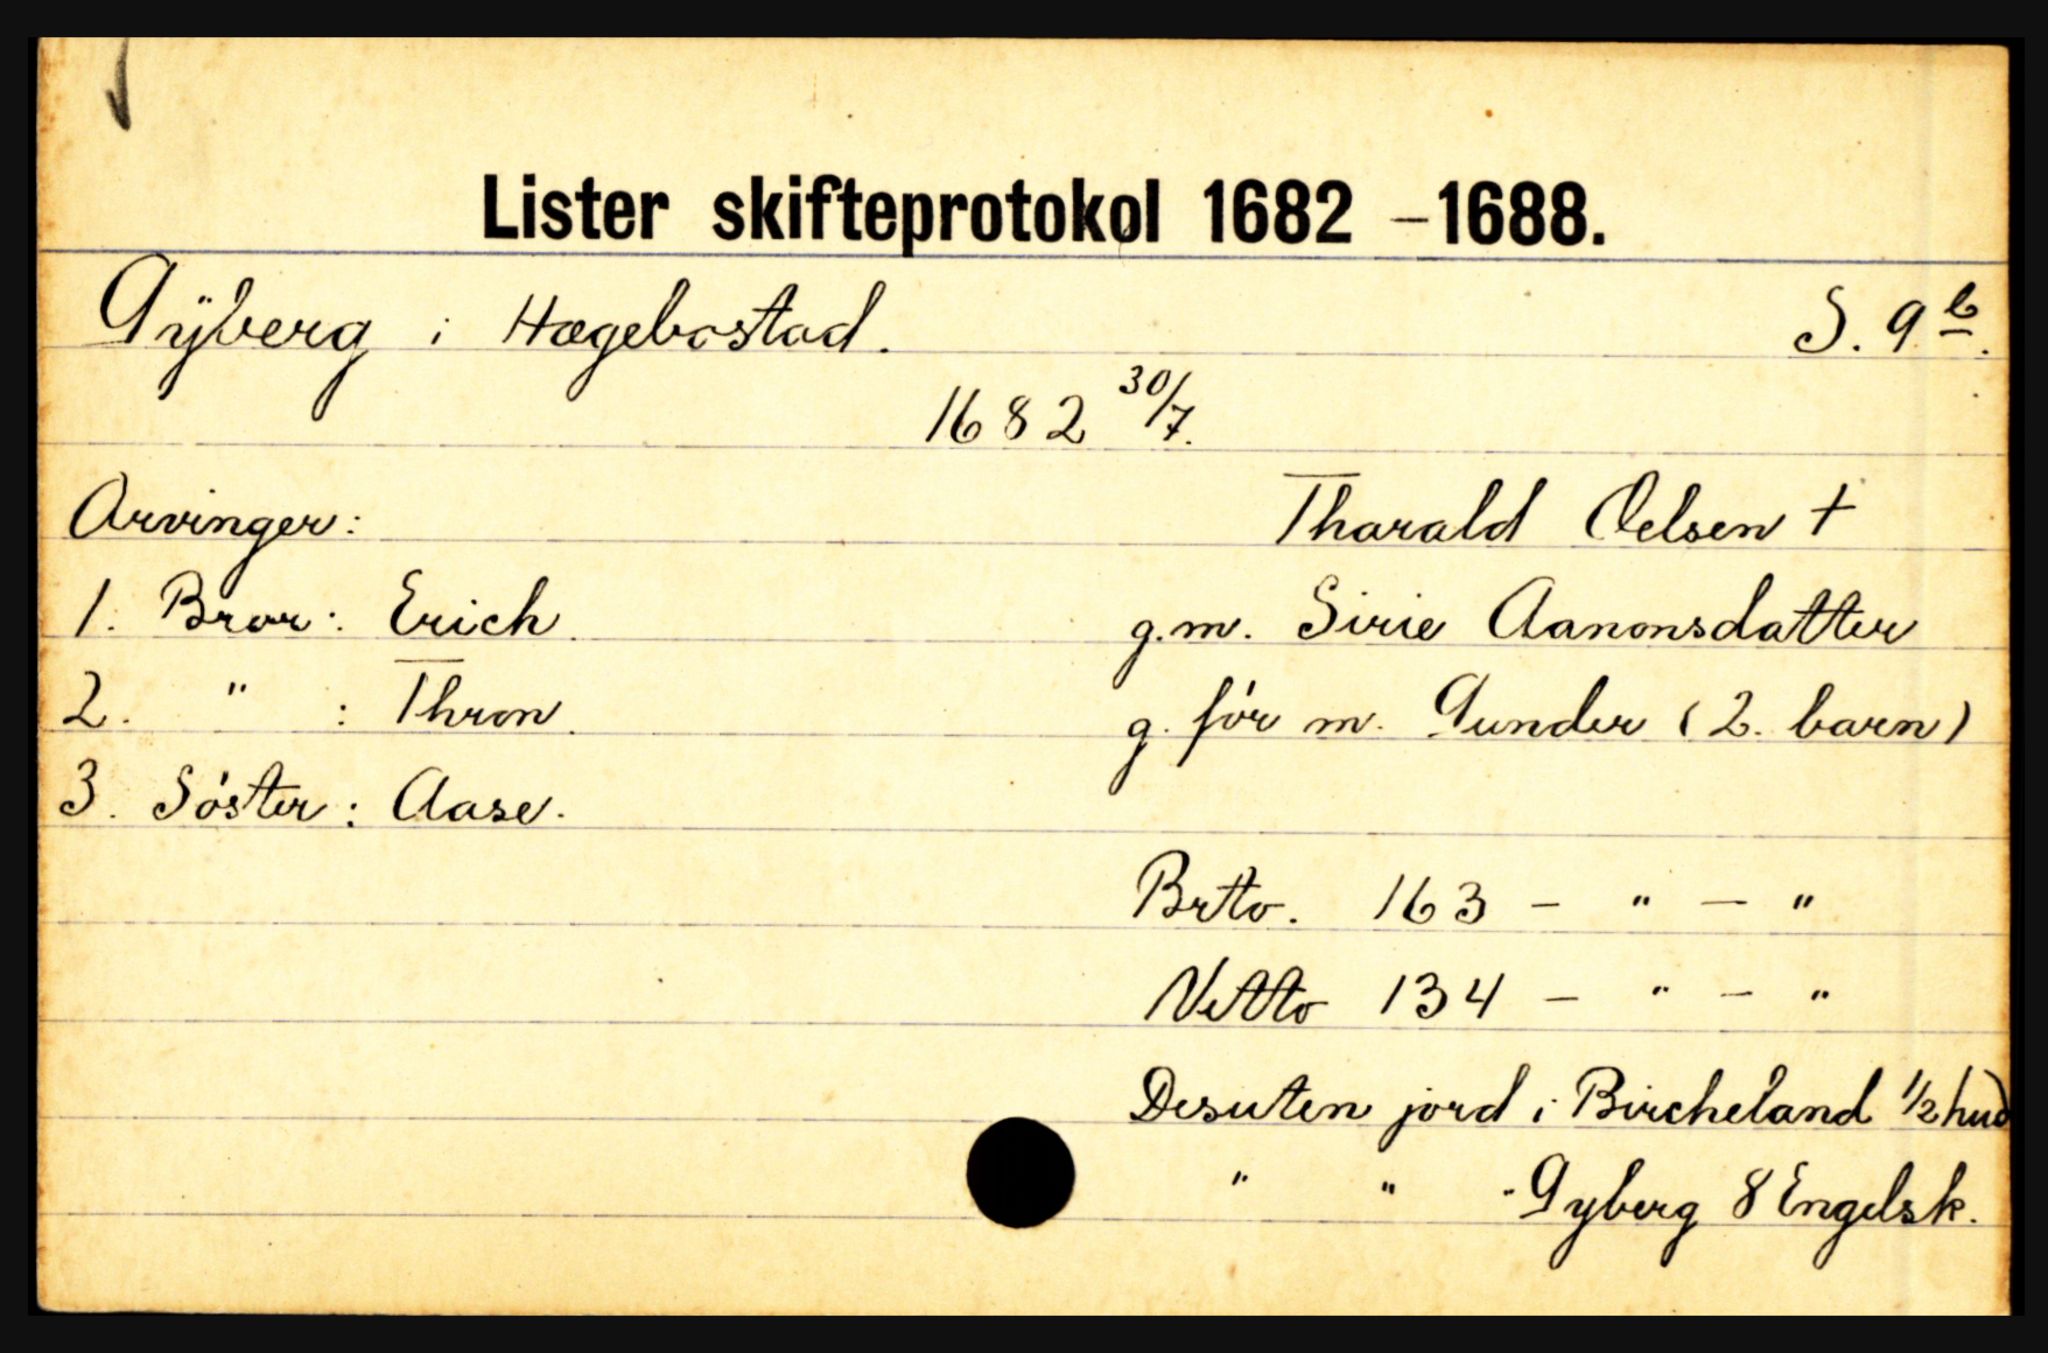 Lister skifteprotokol 1682 – 1688.
Gÿberg i Hægebostad. S. 9 b.
1682 30/7.
Arvinger: Tharald Oelsen †
1. Bror: Erich. g.m. Sirie Aanonsdatter
2. " : Thron. g. før m. Gunder (2. barn)
3. Søster: Aase.
Brto. 163 – " – "
Netto 134 – " – "
Desuten jord i Bircheland 1/2 hud
" " " Gyberg 8 Engelsk.